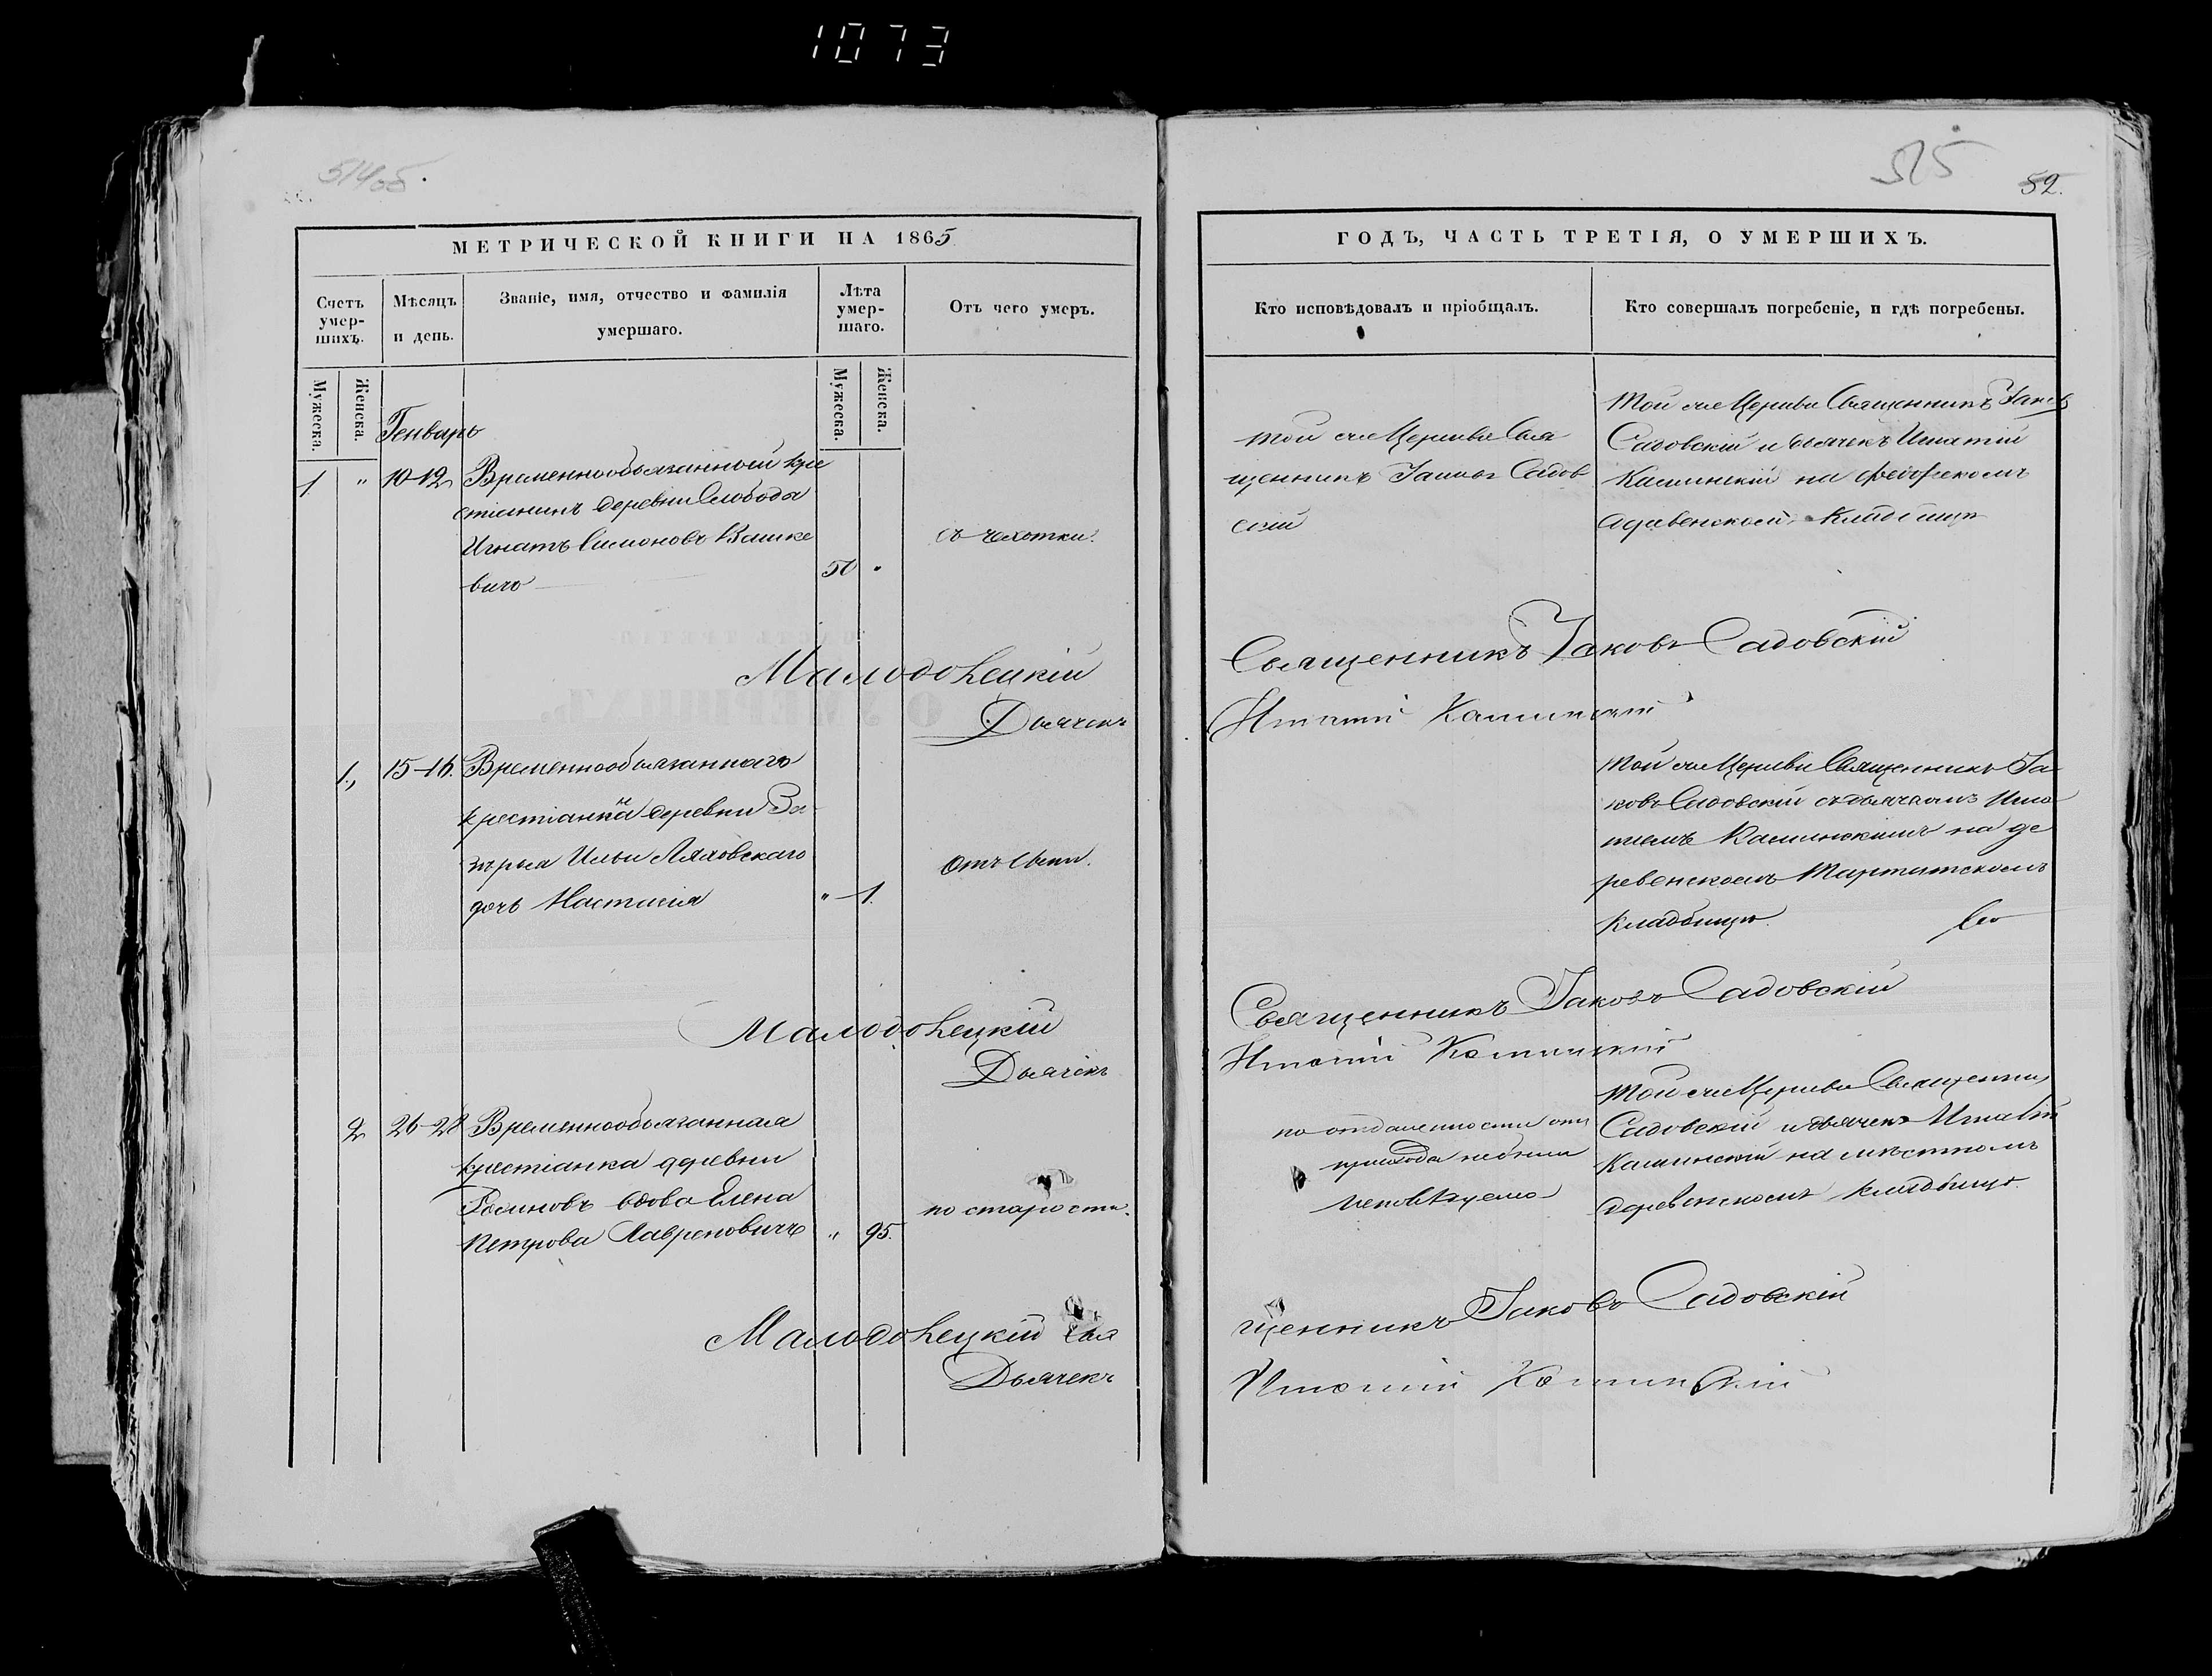 1073
514об.
515
52.
МЕТРИЧЕСКОЙ КНИГИ НА 1865
ГОДЪ, ЧАСТЬ ТРЕТІЯ, О УМЕРШИХЪ.
Счетъ умер-шихъ.
Мѣсяцъ и день.
Званіе, имя, отчество и фамилія
умершаго.
Лѣта умер-шаго.
Отъ чего умеръ.
Кто исповѣдовалъ и пріобщалъ.
Кто совершалъ погребеніе, и гдѣ погребены.
Мужеска.
Женска.
Мужеска.
Женска.
Генварь
1. " 10-12
Временнообязанный кре
стіянинъ деревни Слобода
Игнатъ Симоновъ Вашке
вичъ
50 "
съ чахотки.
той же Церкви Свя
щенникъ Іаковъ Садов
скій
той же Церкви Священникъ Іаковъ
Садовскій и дьячекъ Игнатій
Каминскій на
кладбищѣ
Малодо Цецкій
Священникъ Іаковъ Садовскій
Дьячекъ
Игнатій Каминскій
1., 15-16.
Временнообязаннаго
крестіанина деревни За-
Ильи Ляховскаго
дочь Настасія
" 1.
отъ
той же Церкви Священникъ Іа
ковъ Садовскій съ дьячкомъ Игна
тіемъ Каминскимъ на де
ревенскомъ
кладбищѣ.
Священникъ Іаковъ Садовскій
Дьячекъ
Игнатій Каминскій
2 26-28
Временнообязанная
крестіанка деревни
вдова Елена
Петрова Лавреновичъ
" 95.
по старости.
по отдаленности отъ
прихода небыла
исповѣдуема
той же Церкви Священник
Садовскій и дьячекъ Игнатій
Каминскій на мѣстномъ
деревенскомъ кладбищѣ.
Свя
щенникъ Іаковъ Садовскій
Дьячекъ
Игнатій Каминскій